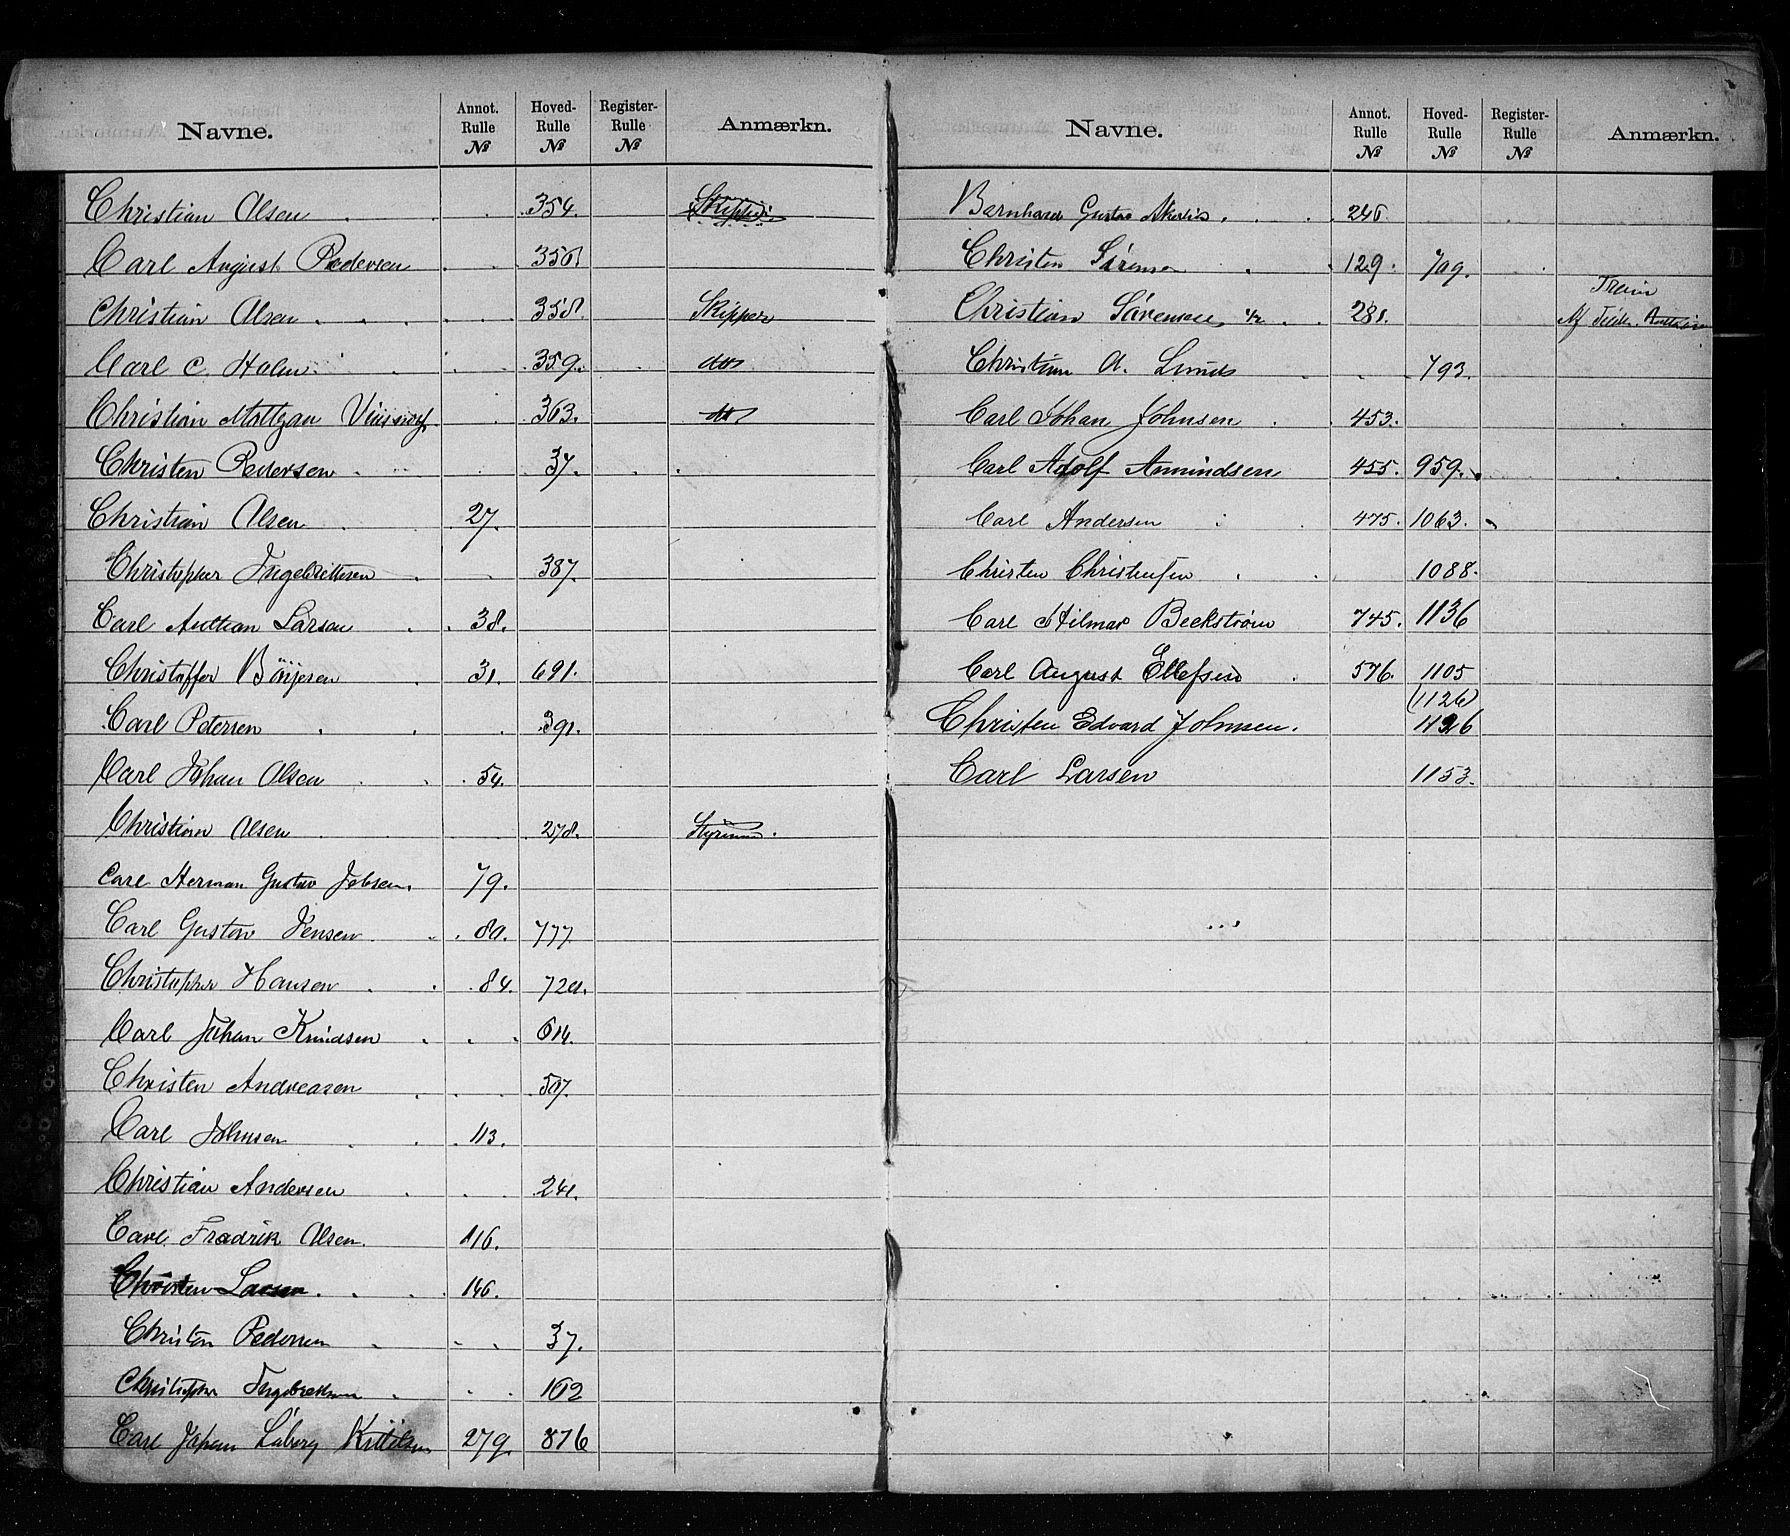 Navne. Annot. Rulle № Hoved- Rulle № Register- Rulle № Anmærkn.
Christian Olsen 354. Skipper
Carl August Pedersen 356
Christian Olsen 358. Skipper
Carl C. Holm 359. do
Christian Mathgau 363. do
Christen Pedersen 37.
Christian Olsen 27.
Christopher Ingebrettsen 387.
Carl Anthan Larsen 38.
Christoffer Börjesen 31. 691.
Carl Petersen 391.
Carl Johan Olsen 54.
Christian Olsen 278. Styrmm.
Carl Herman Gustav Jebsen. 79.
Carl Gustav Jensen 80. 777
Christopher Hansen 84. 720.
Carl Johan Knudsen 614.
Christen Andreasen 507.
Carl Johnsen 113.
Christian Andersen 241.
Carl Fradrik Olsen. 116.
Christen Larsen. 146.
Christen Pedersen 37.
Christopher Ingebretsen 162
Carl Johan Kittilsen 279. 876
Navne. Annot. Rulle № Hoved- Rulle № Register- Rulle № Anmærkn.
Barnhard Gustav 246.
Christen Sörensen 129. 709.
Train
Christian Sörensen 281. Af
Christian A. Lund 793.
Carl Johan Johnsen 453.
Carl Adolf Amundsen 455. 959.
Carl Andersen 475. 1063.
Christen Christensen 1088.
Carl Hilmar Beckström 745. 1136
Carl August Ellefsen 576. 1105
(1126)
Christen Edvard Johnsen. 1126
Carl Larsen 1153.